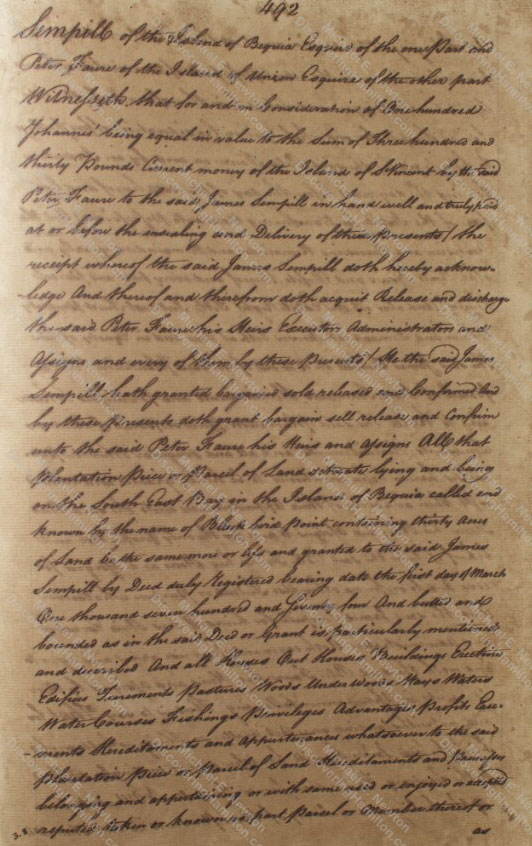 492
Sempill of the Island of Bequia Esquire of the one part and
Peter Faure of the Island of Union Esquire of the other part
Witnesseth that for and in Consideration of One hundred
Johannes being equal in value to the Sum of Three hundred and
thirty Pounds Current money of the Island of St Vincent by the said
Peter Faure to the said James Sempill in hand well and truly paid
at or before the ensealing and Delivery of these presents (the
receipt whereof the said James Sempill doth hereby acknow-
ledge And thereof and therefrom doth acquit Release and discharge
the said Peter Faure his Heirs Executors Administrators and
Assigns and every of them by these Presents) He the said James
Sempill hath granted bargained sold released and Confirmed And
by these Presents doth grant bargain sell release and Confirm
unto the said Peter Faure his Heirs and Assigns All that
Plantation Piece or Parcel of Land situate lying and being
on the South East Bay in the Island of Bequia called and
known by the name of point containing thirty Acres
of Land be the same more or less and granted to the said James
Sempill by Deed duly Registered bearing date the first day of March
One thousand seven hundred and Seventy four And butted and
bounded as in the said Deed or Grant is particularly mentioned
and described And all Houses Out Houses Buildings Erections
Edifices Tenements Pastures Woods Underwoods Ways Waters
Water Courses Fishings Privileges Advantages Profits Ease-
ments Hereditaments and Appurtenances whatsoever to the said
Plantation Piece or Parcel of Land Hereditaments and Premisses
belonging and appertaining or with same used or enjoyed or accepted
reputed taken or known as part Parcel or Member thereof or
as